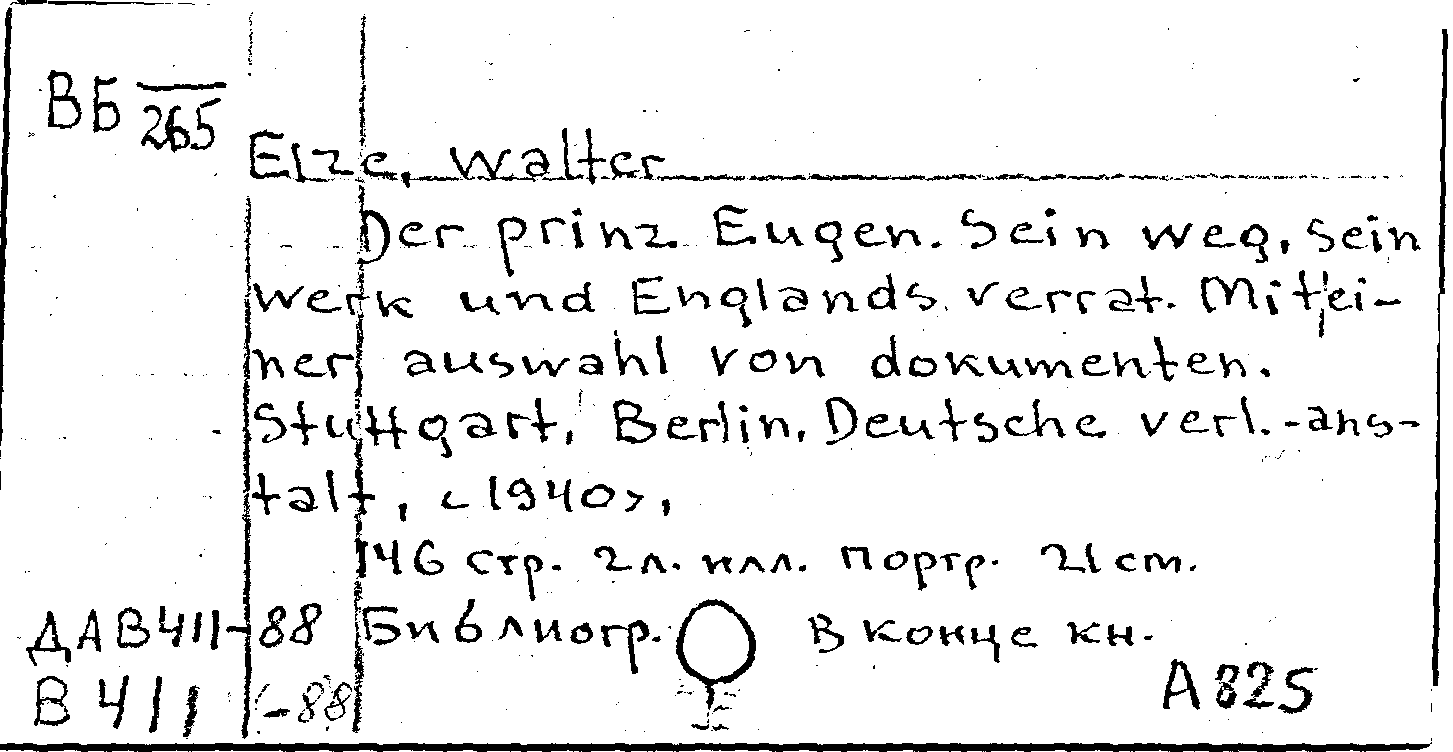 ВБ 265
Elze, Walter
Der prinz Eugen. Sein weg, sein
werk und Englands verrat. Mit ei-
ner auswahl von dokumenten.
Stuttgart, Berlin, Deutsche verl.-ans-
talt, <1940>,
146 стр. 2 л. илл. портр. 21 cm.
ДАВ411-88 Библиогр. в конце кн.
В 411-88
А825